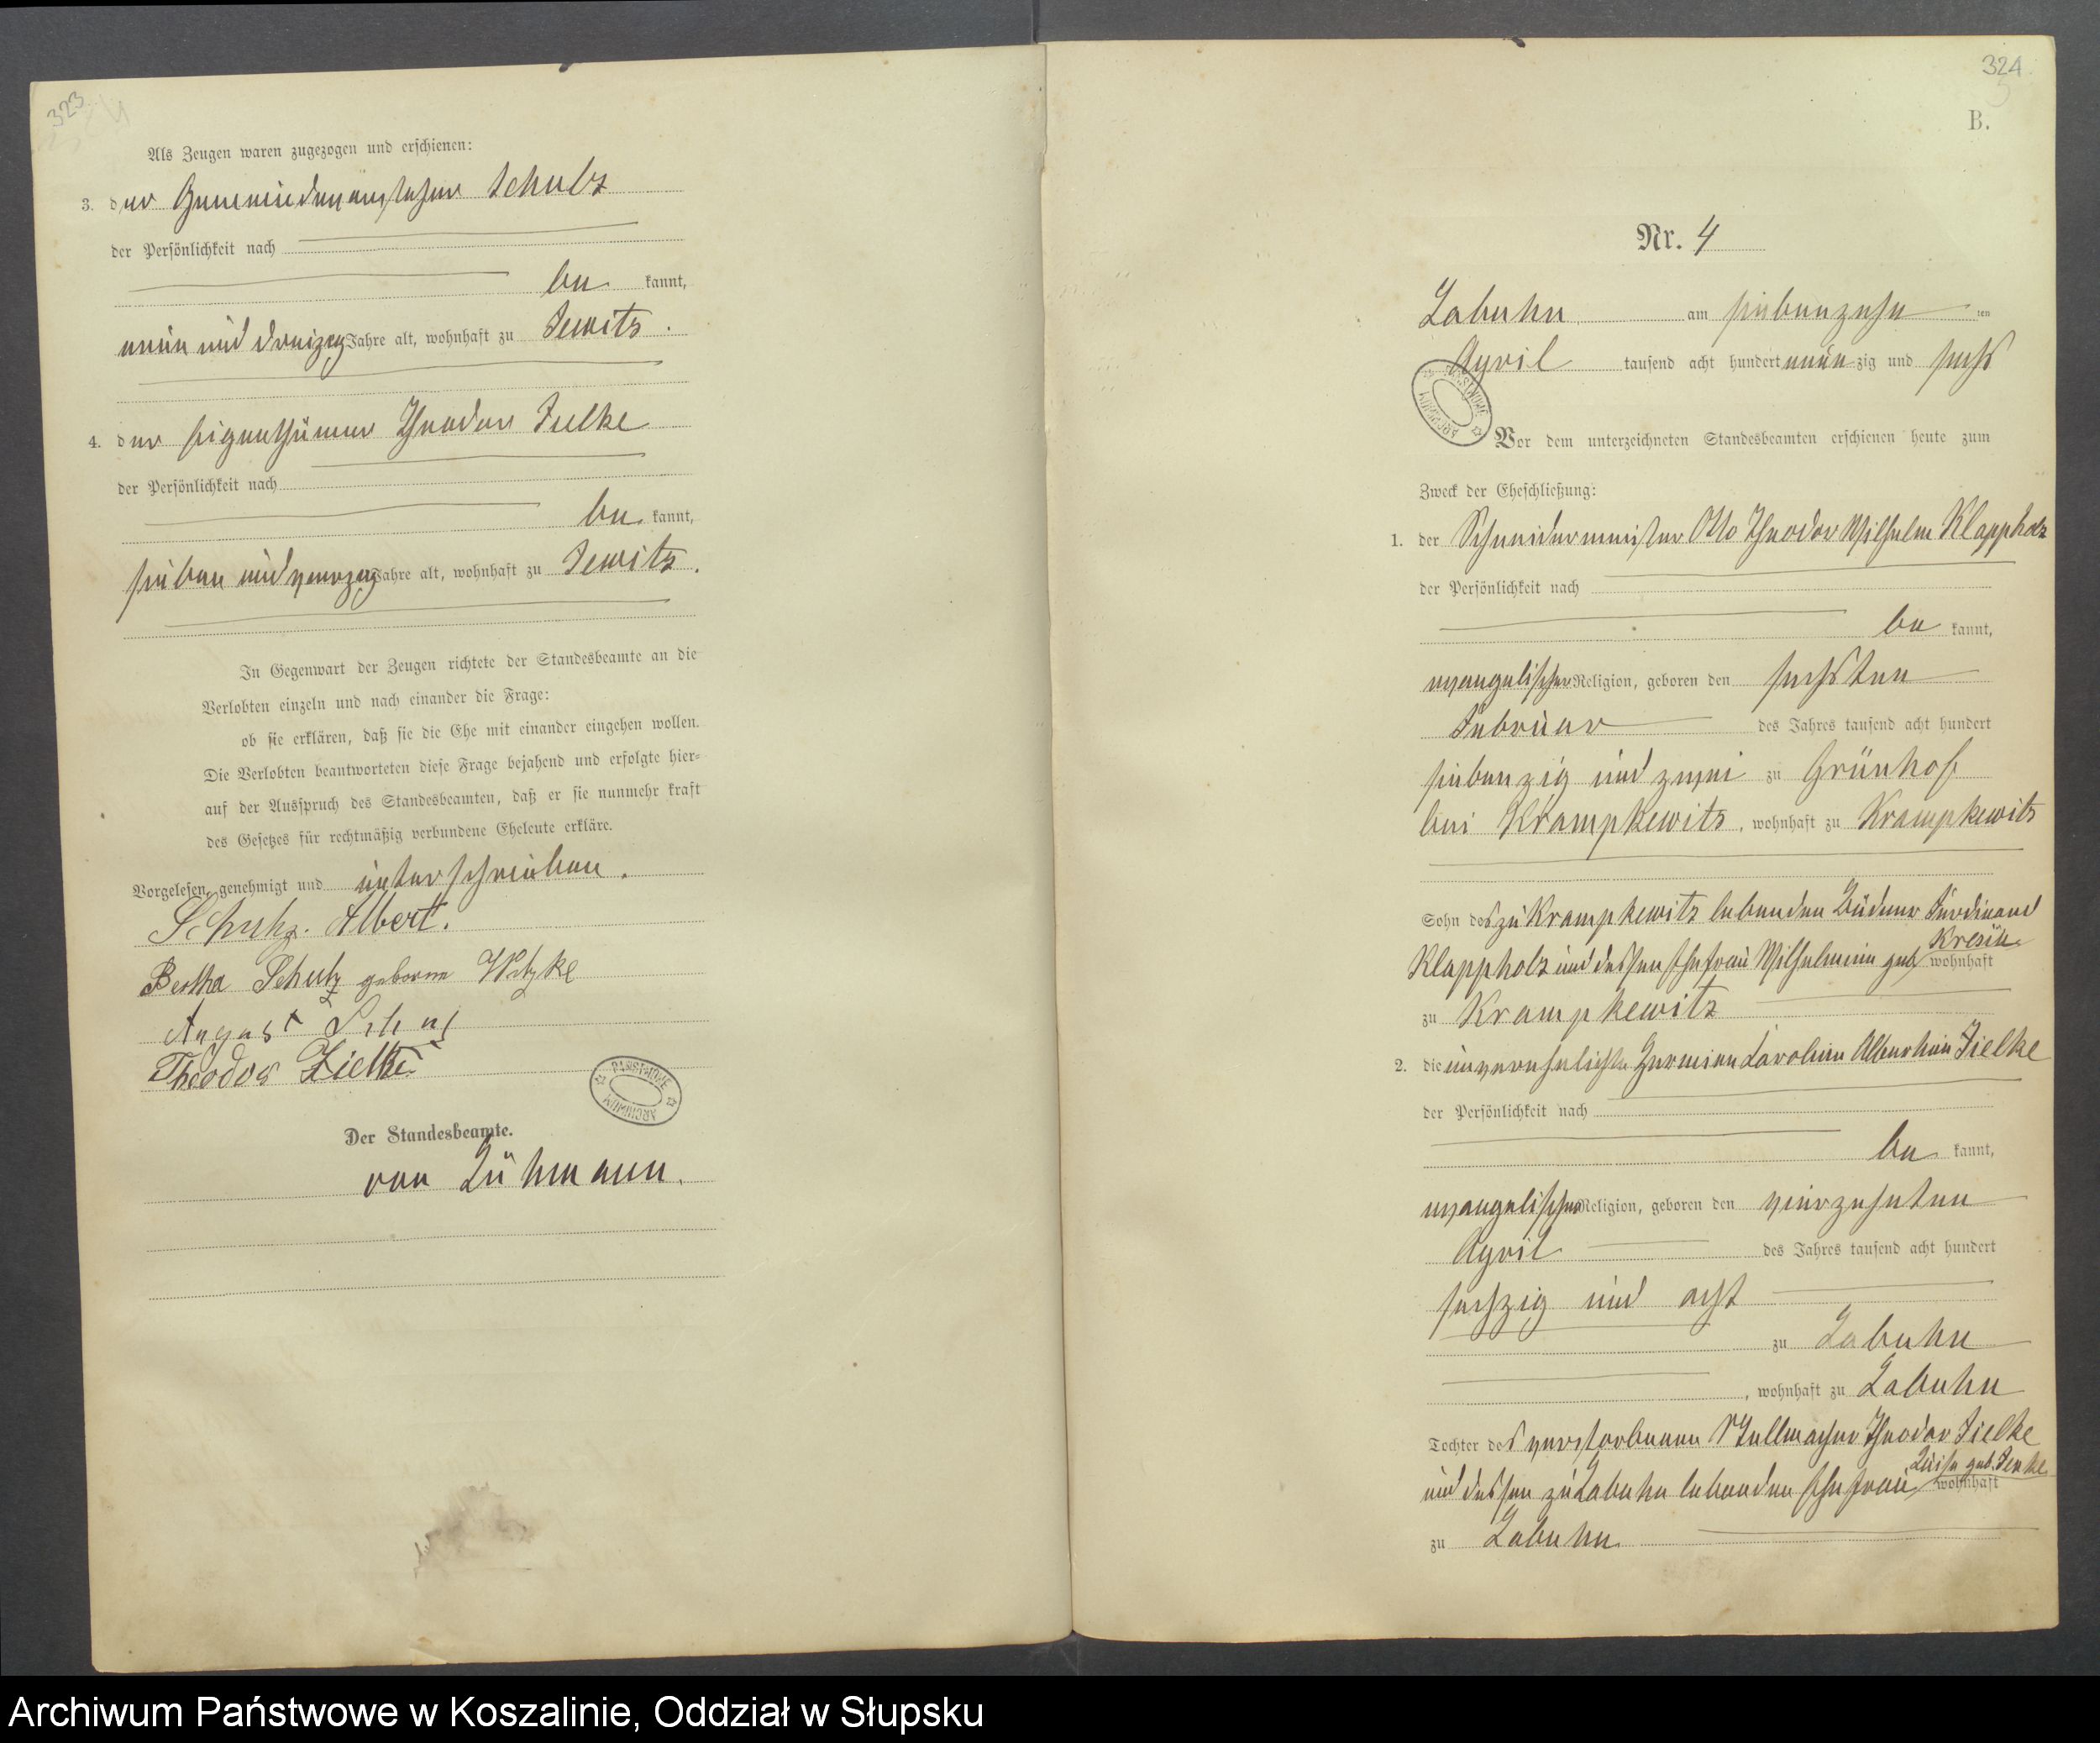 323
Als Zeugen waren zugezogen und erschienen:
3. der Gemeindevorsteher Schulz
der Persönlichkeit nach
be kannt,
neun und dreizig Jahre alt, wohnhaft zu Zewitz.
4. der Eigenthümer Theodor Zielke
der Persönlichkeit nach
be kannt,
sieben und vierzig Jahre alt, wohnhaft zu Zewitz.
In Gegenwart der Zeugen richtete der Standesbeamte an die
Verlobten einzeln und nach einander die Frage:
ob sie erklären, daß sie die Ehe mit einander eingehen wollen.
Die Verlobten beantworteten diese Frage bejahend und erfolgte hier=
auf der Ausspruch des Standesbeamten, daß er sie nunmehr kraft
des Gesetzes für rechtmäßig verbundene Eheleute erkläre.
Vorgelesen, genehmigt und unterschrieben.
Schulz. Albert.
Bertha Schulz geborne
August Schulz
Theodor Zielke
ARCHIWUM PAŃSTWOWE
Der Standesbeamte.
von Lühmann.
324
B.
Nr. 4
Labuhn am siebenzehn ten
April tausend acht hundert neun zig und sechs
ARCHIWUM PAŃSTWOWE
Vor dem unterzeichneten Standesbeamten erschienen heute zum
Zweck der Eheschließung:
1. der Schneidermeister Otto Theodor Wilhelm Klappholz
der Persönlichkeit nach
be kannt,
evangelischer Religion, geboren den sechsten
Februar des Jahres tausend acht hundert
siebenzig und zwei zu Grünhof
bei Krampkewitz, wohnhaft zu Krampkewitz
Sohn des zu Krampkewitz lebenden Büdner Ferdinand
Klappholz und dessen Ehefrau Wilhelmine geb. Kresin wohnhaft
zu Krampkewitz
2. die unverehelichte Hermine Karoline Albertine Zielke
der Persönlichkeit nach
be kannt,
evangelischer Religion, geboren den vierzehnten
April des Jahres tausend acht hundert
sechzig und acht
zu Labuhn
, wohnhaft zu Labuhn
Tochter des verstorbenen Stellmacher Theodor Zielke
und dessen zu Labuhn lebenden Ehefrau Luise geb. wohnhaft
zu Labuhn
Archiwum Państwowe w Koszalinie, Oddział w Słupsku